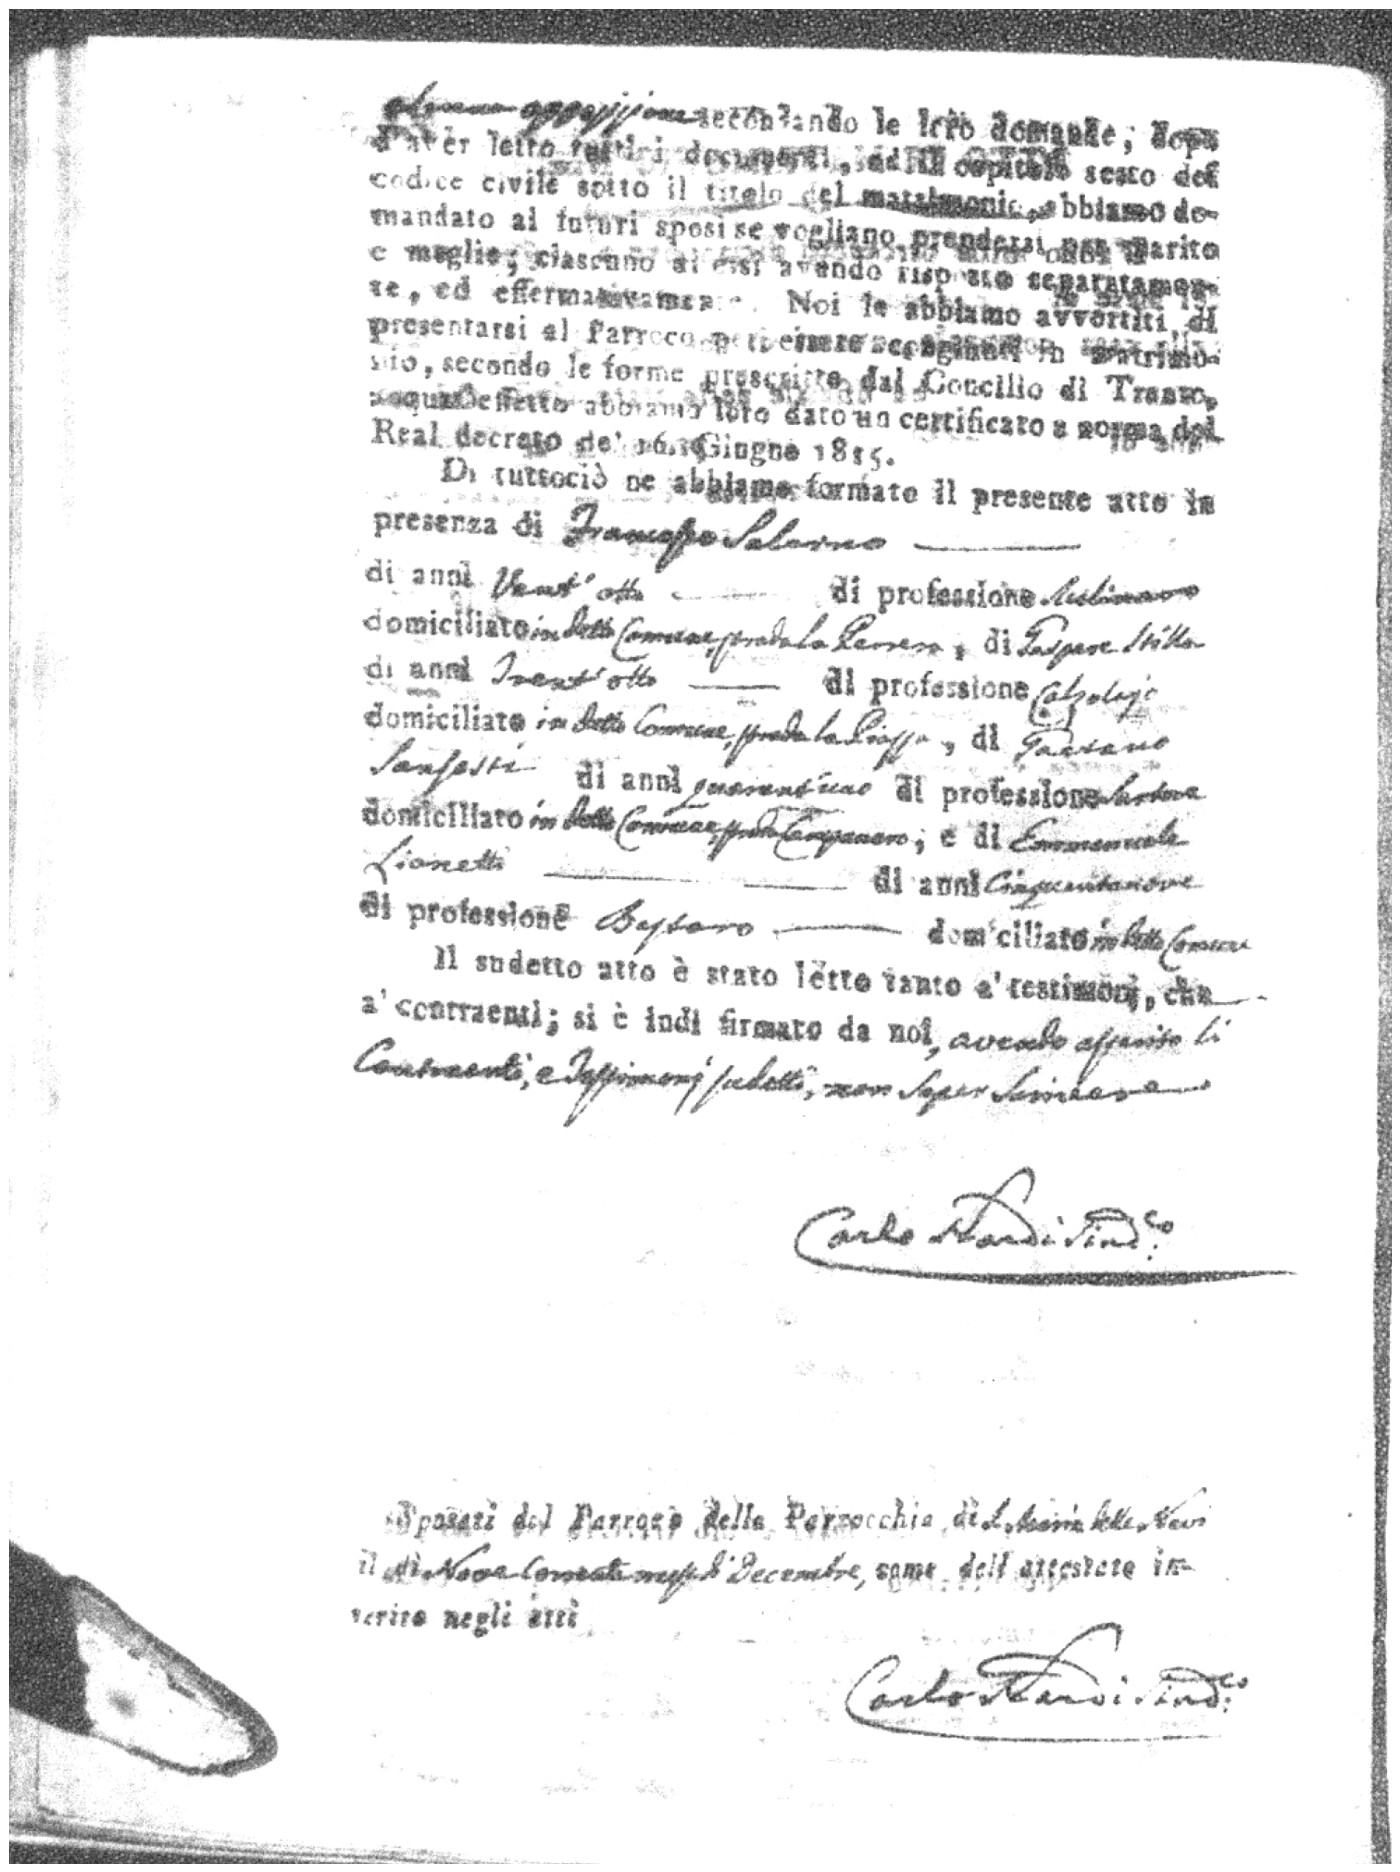 alcuna opposizione secondando le loro domande; dopo
d'aver letto tutti i documenti, ed il capitolo sesto del
codice civile sotto il titolo del matrimonio, abbiamo do-
mandato ai futuri sposi se vogliano prendersi per marito
e moglie; ciascuno di essi avendo risposto separatamen-
te, ed affermativamente. Noi le abbiamo avvertiti di
presentarsi al Parroco per essere congiunti in matrimo-
nio, secondo le forme prescritte dal Concilio di Trento,
a qual effetto abbiamo loro dato un certificato a norma del
Real decreto de' 16. Giugno 1815.
Di tuttociò ne abbiamo formato il presente atto in
presenza di Francesco Salerno
di anni Vent'otto di professione Mulinaro
domiciliato in detto Comune, strada la , di Gaspare Stilla
di anni Trent'otto di professione Calzolajo
domiciliato in detto Comune, strada la Piazza, di Gaetano
Sanfesti di anni quarant'uno di professione Sartore
domiciliato in detto Comune, strada Campanaro; e di Emmanuele
Lionetti di anni Cinquantanove
di professione Bastaro domiciliato in detto Comune
Il sudetto atto è stato letto tanto a' testimonj, che
a' contraenti; si è indi firmato da noi, avendo asserito li
Contraenti, e Testimonj sudetti, non saper
Carlo Nardi Sind.co
Sposati dal Parroco della Parrocchia di S. Maria della Neve
il dì Nove Corrente mese di Decembre, come dell attestato in-
serito negli atti
Carlo Nardi Sind.co